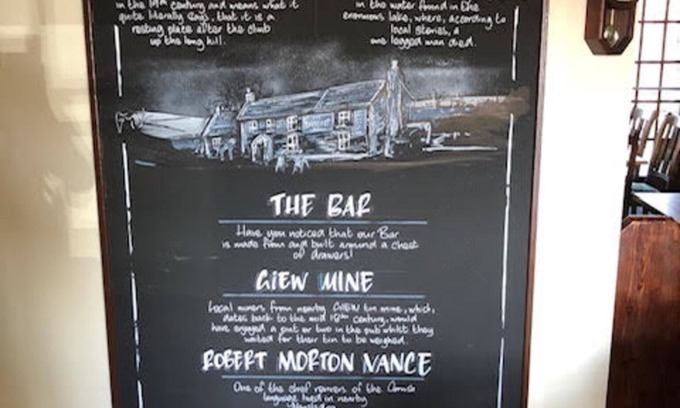 in the 19th century and means what it
quite literally says, that it is a
resting place after the climb
up the long hill.
in the water found in the
enormous lake, where, according to
local stories, a
one legged man died.
THE BAR
Have you noticed that our Bar
is made from and built around a chest
of drawers!
GIEW MINE
Local miners from nearby GIEW tin mine, which,
dates back to the mid 18th century, would
have enjoyed a pint or two in the pub whilst they
waited for their tin to be weighed.
ROBERT MORTON NANCE
One of the chief revivers of the Cornish
language lived in nearby